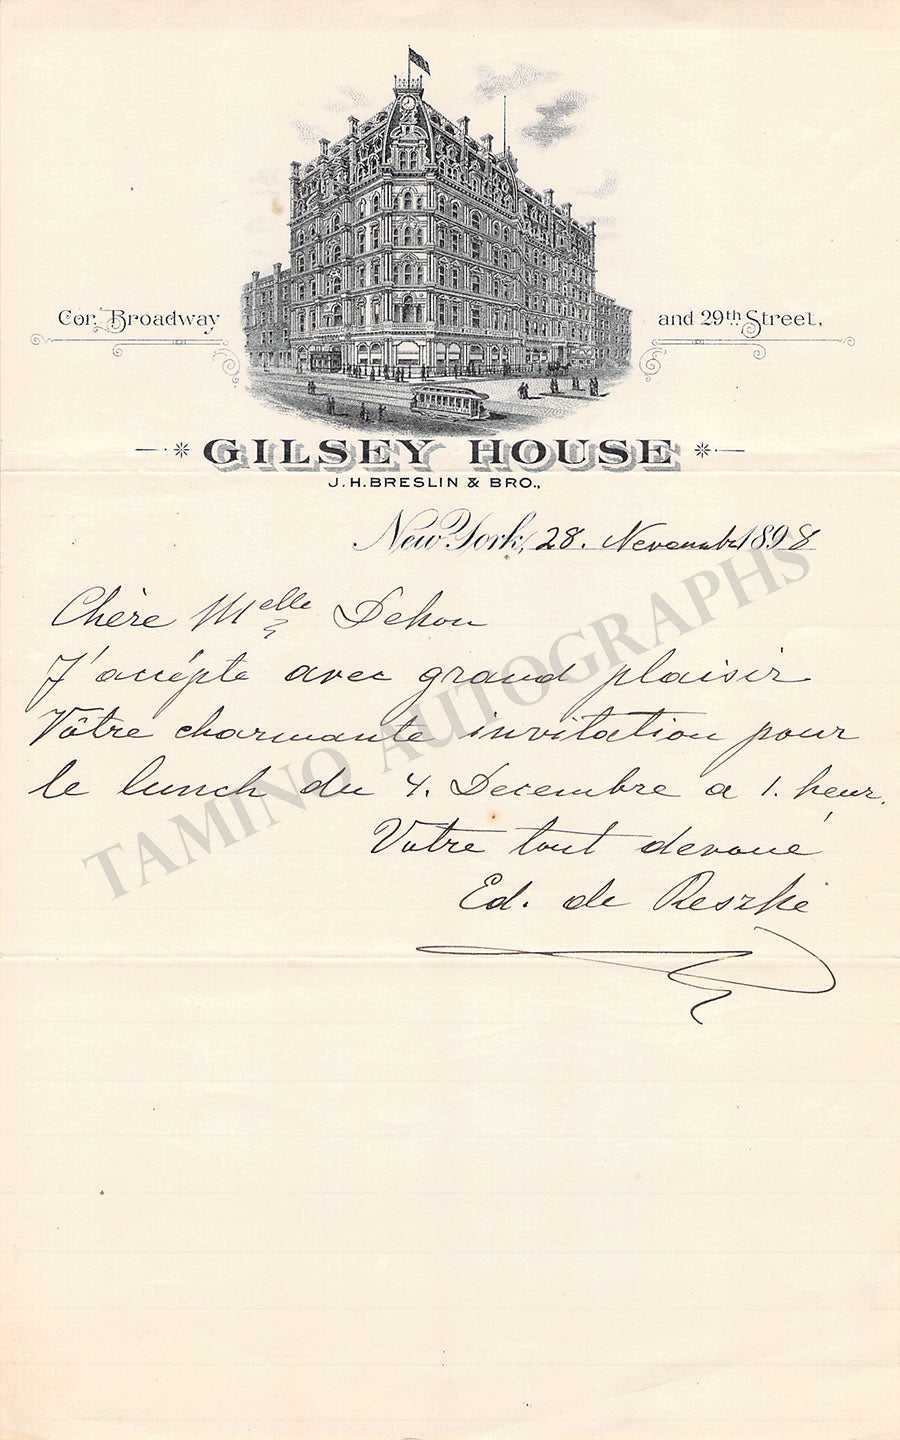 Cor. Broadway and 29th Street,
GILSEY HOUSE
J.H. BRESLIN & BRO.,
New York, 28. Novembr 1898
Chère Melle Dehon
J'accépte avec grand plaisir
Vôtre charmante invitation pour
le lunch du 4. Decembre a 1. heur.
Votre tout devoué
Ed. de Reszke
TAMINO AUTOGRAPHS